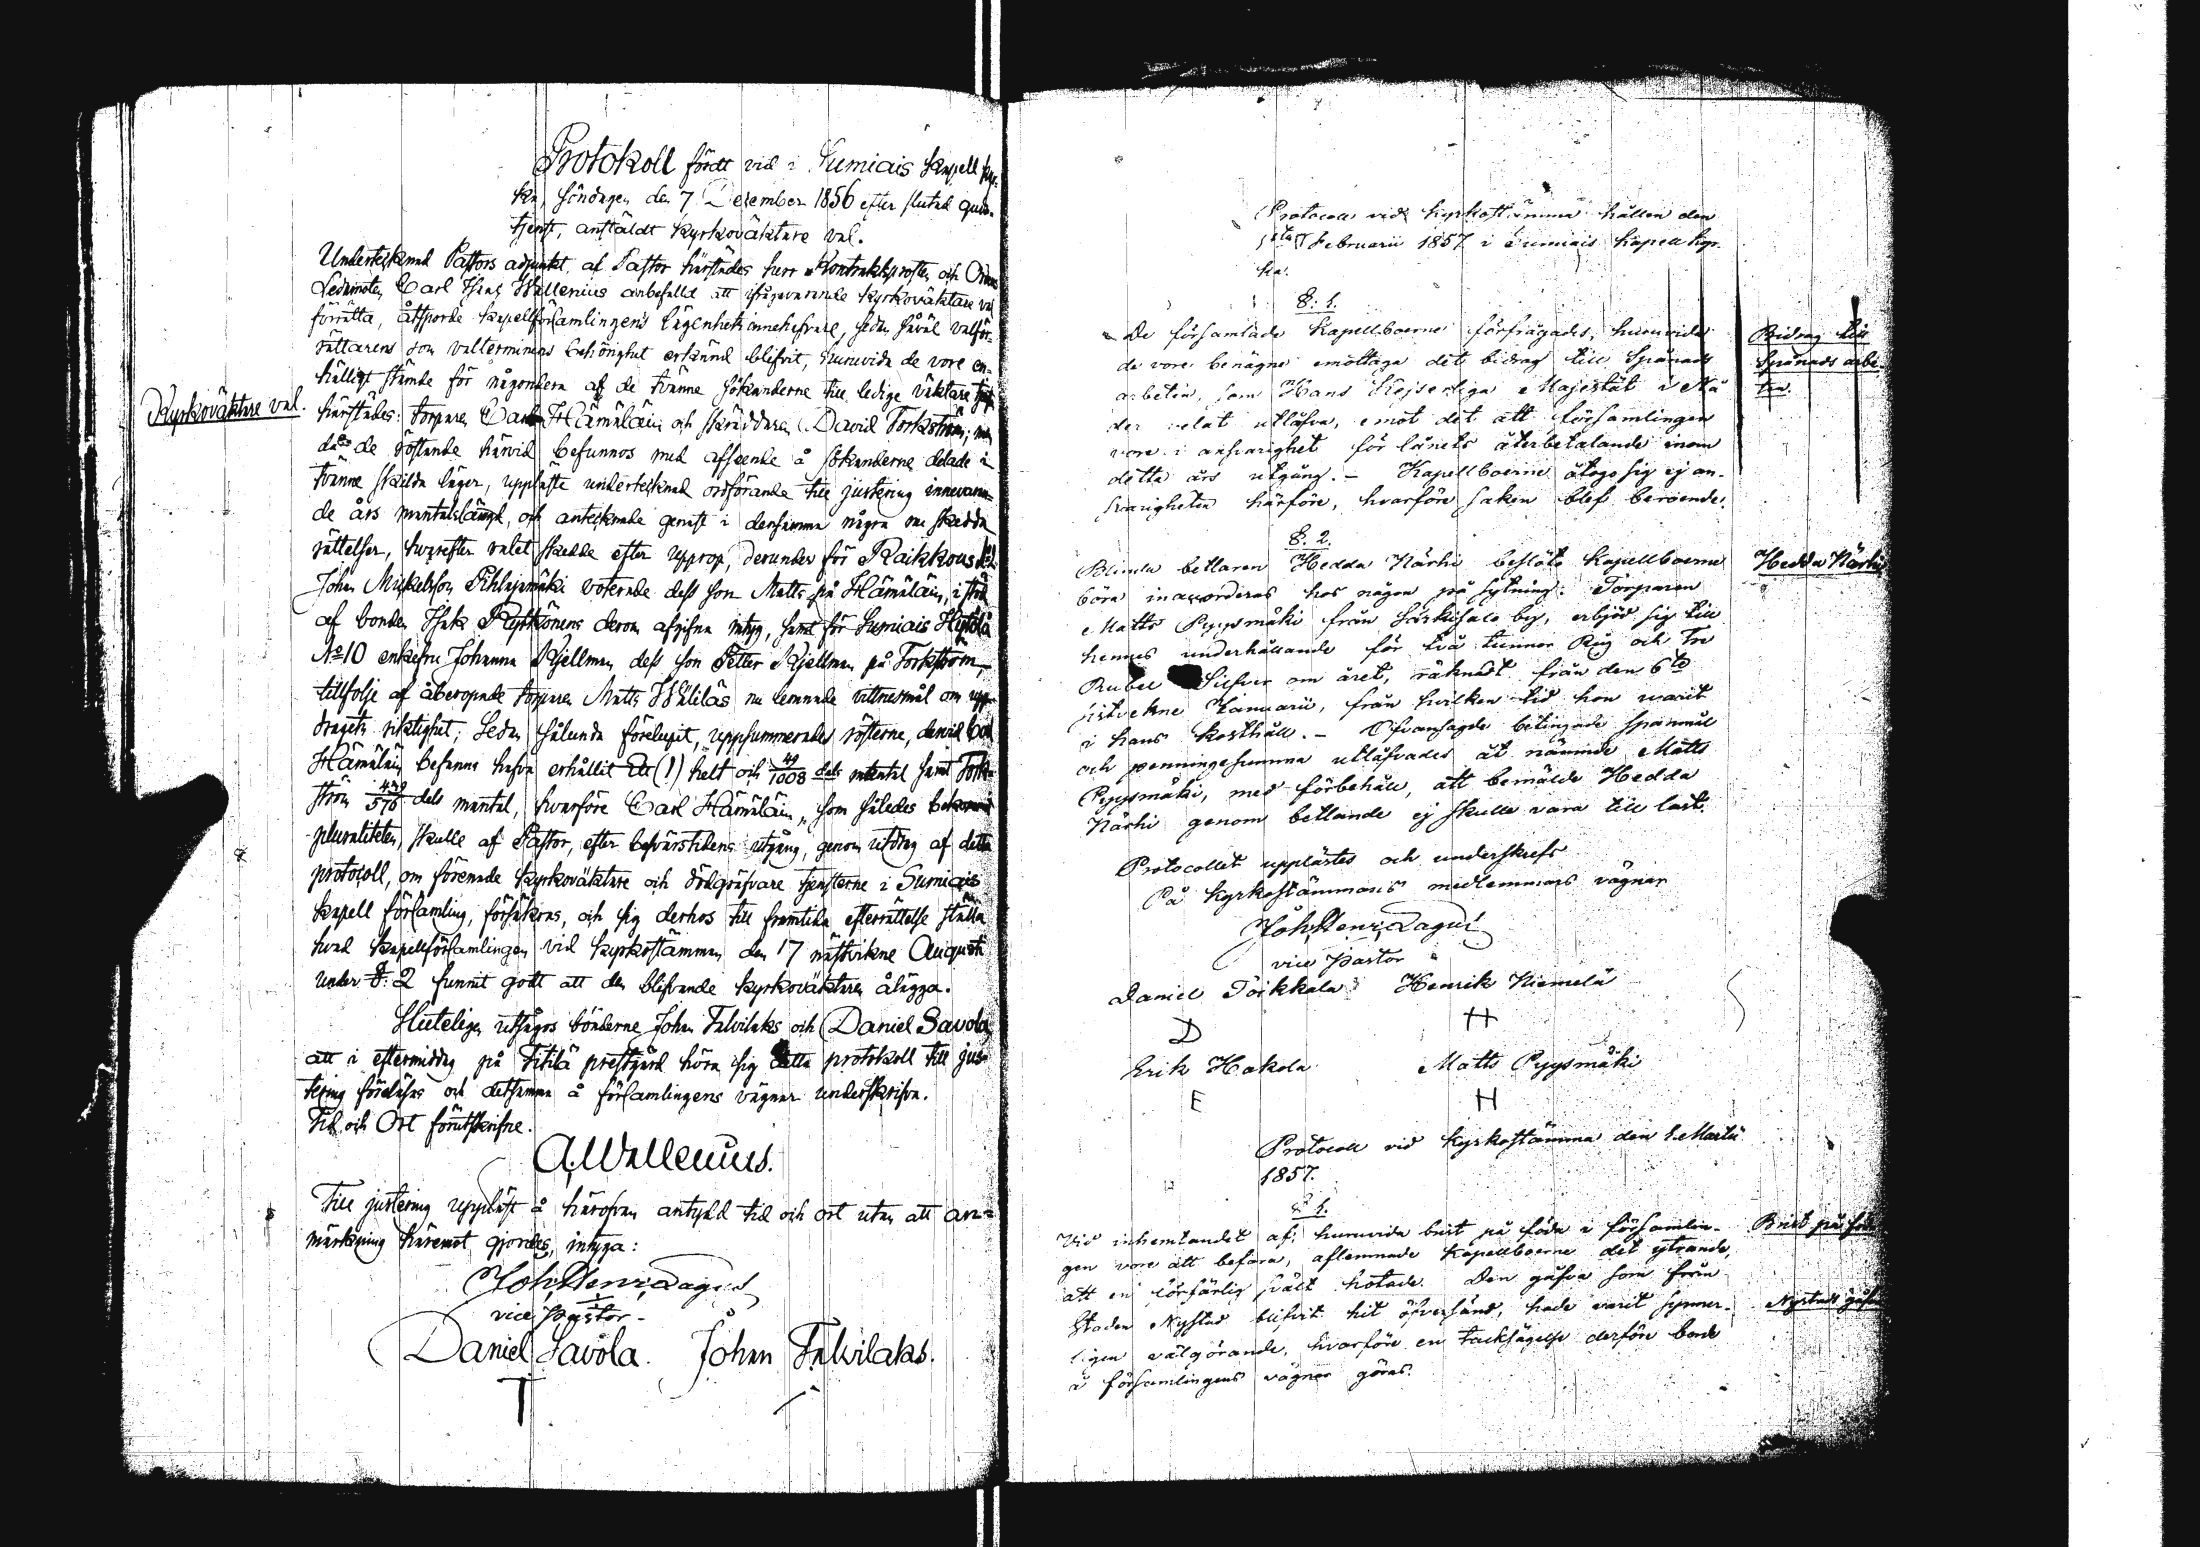 Protokoll fördt vid i Sumiais Kapell kyr-
ka, söndagen den 7 December 1856 efter slutad guds-
tjenst, anstäldt Kyrkoväktare val.
Undertecknad Pastors adjunkt, af Pastor härstädes herr Kontraktsprosten och Ordens
Ledamoten Carl Isaac Wallenius anbefalld att ifrågavarande Kyrkoväktare val
förrätta, åtsporde kapellförsamlingens lägenhets innehafvare, sedan såväl valför-
rättarens som valterminens behörighet erkänd blifvit, huruvida de vore en-
hälligt stämde för någondera af de tvänne sökanderne till lediga väktare tjenst
Kyrkoväktare val.
härstädes: torparen Carl Hämäläin och skräddaren David Torkström; men
då de röstande härvid befunnos med afseende å sökanderne delade i
tvänne skilda läger, uppläste undertecknad ordförande till justering innevaran-
de års mantalslängd, och antecknade genast i densamma några nu skedda
rättelser, hvarefter valet skedde efter upprop, derunder för Raikkous
Johan Mickelsson Pihlajamäki voterade dess son Matts på Hämäläin, i stöd
af bonden Isak Rytkönens derom afgifna intyg, samt för Sumiais Hytölä
No 10 enkefru Johanna Kjellman dess son Petter Kjellman på Torkström,
tillfölje af åberopade torparen Matts Wäliläs nu lemnade vittnesmål om upp-
dragets riktighet; Sedan sålunda förelupit, uppsummerades rösterne, dervid Carl
Hämäläin befanns hafva erhållit Ett (1) helt och 49/1008 dels mantal samt Tork-
ström 449/576 dels mantal, hvarföre Carl Hämäläin, som således bekommit
pluraliteten, skulle af Pastor, efter besvärstidens utgång, genom utdrag af detta
protocoll, om förenade kyrkoväktare och dödgräfvare tjensterne i Sumiais
kapell församling, försäkras, och sig derhos till framtida efterrättelse ställa
hvad kapellförsamlingen vid kyrkostämman den 17 nästvikne Augusti
under §. 2 funnit godt att den blifvande kyrkoväktaren ålägga.
Sluteligen utsågos bönderne Johan Talvilaks och Daniel Savola,
att i eftermiddag på Titilä prestgård höra sig detta protokoll till jus-
tering föreläsas och detsamma å församlingens vägnar underskrifva.
Tid och Ort förutskrifne.
A. Wallenius.
Till justering uppläst å härofvan antydd tid och ort utan att an-
märkning häremot gjordes, intyga:
Joh. Henr. Lagus
vice pastor
Daniel Savola. Johan Talvilaks.
Protocoll vid kyrkostämma hållen den
1sta Februarii 1857 i Sumiais kapell kyr-
ka.
§. 1.
De församlade Kapellboerne förfrågades, huruvida
Bidrag till
de vore benägne emottaga det bidrag till Spånads
Spånads arbe-
arbeten, som Hans Kejserliga Majestät i Nå
ten.
der velat utlåfva, emot det att församlingen
vore i ansvarighet för lånets återbetalande inom
detta års utgång. - Kapellboerne åtogo sig ej an-
svarigheten härföre, hvarföre saken blef beroende.
§. 2.
Blinda bettlaren Hedda Närhi beslöto kapellboerne
Hedda Närhi
böra inackorderas hos någon på sytning. Torparen
Matts Pyysmäki från Särkisalo by, erbjöd sig till
hennes underhållande för två tunnor Råg och Tre
Rubel Silfver om året, räknadt från den 6te
sistvekne Januarii, från hvilken tid hon warit
i hans kosthåll. - Ofvansagde betingade spanmål
och penningesumma utlåfvades åt nämnde Matts
Pyysmäki, med förbehåll, att bemälde Hedda
Närhi genom bettlande ej skulle vara till last.
Protocollet upplästes och underskrefs
På kyrkostämmans medlemmars vägnar
Joh. Henr. Lagus
vice pastor
Daniel Poikkala Henrik Niemelä
D H
Erik Hakola Matts Pyysmäki
E H
Protocoll vid kyrkostämma den 1. Martii
1857.
§ 1.
Vid inhemtandet af, huruvida brist på föda i församlin-
Brist på föda
gen vore att befara, aflemnade kapellboerne det yttrande,
att en förfärlig svält hotade. Den gåfva som från
Staden Nystad blifvit hit öfversänd, hade varit synner-
Nystads gåfva
ligen välgörande, hvarföre en tacksägelse derföre borde
å församlingens vägnar göras.